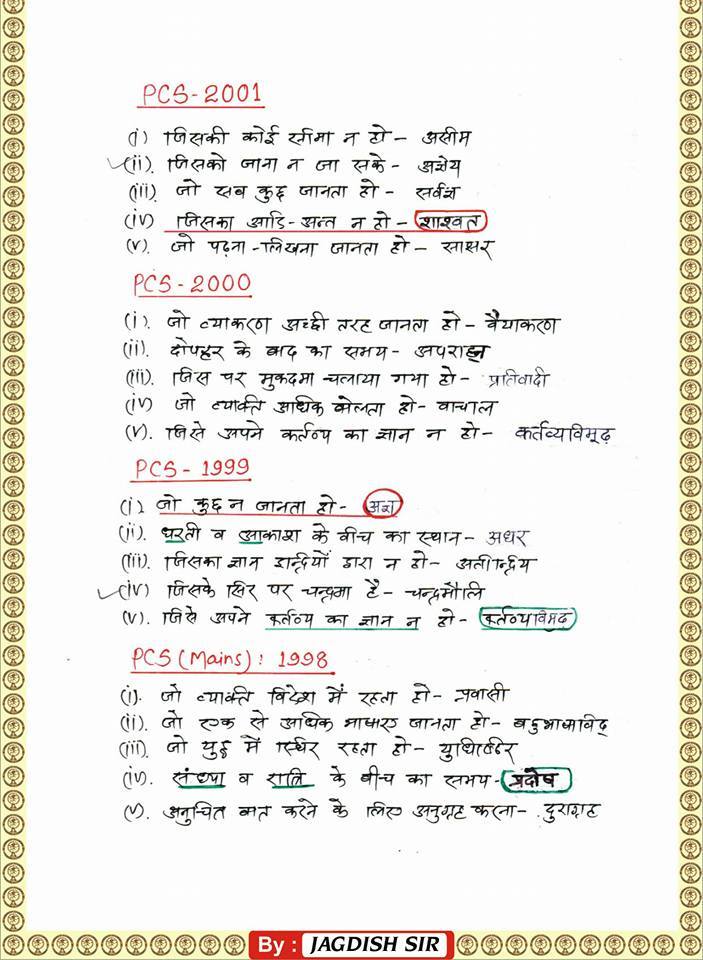 PCS-2001
(i) जिसकी कोई सीमा न हो - असीम
(ii). जिसको जाना न जा सके - अज्ञेय
(iii). जो सब कुछ जानता हो - सर्वज्ञ
(iv) जिसका आदि-अन्त न हो - शाश्वत
(v). जो पढ़ना-लिखना जानता हो - साक्षर
PCS-2000
(i). जो व्याकरण अच्छी तरह जानता हो - वैयाकरण
(ii). दोपहर के बाद का समय - अपराह्न
(iii). जिस पर मुकदमा चलाया गया हो - प्रतिवादी
(iv) जो व्यक्ति अधिक बोलता हो - वाचाल
(v). जिसे अपने कर्तव्य का ज्ञान न हो - कर्तव्यविमूढ़
PCS - 1999
(i). जो कुछ न जानता हो - अज्ञ
(ii). धरती व आकाश के बीच का स्थान - अधर
(iii). जिसका ज्ञान इन्द्रियों द्वारा न हो - अतीन्द्रिय
(iv) जिसके सिर पर चन्द्रमा है - चन्द्रमौलि
(v). जिसे अपने कर्तव्य का ज्ञान न हो - कर्तव्यविमूढ़
PCS (Mains) : 1998
(i). जो व्यक्ति विदेश में रहता हो - प्रवासी
(ii). जो एक से अधिक भाषाएं जानता हो - बहुभाषाविद्
(iii). जो युद्ध में स्थिर रहता हो - युधिष्ठिर
(iv). संध्या व रात्रि के बीच का समय - प्रदोष
(v). अनुचित बात करने के लिए अनुग्रह करना - दुराग्रह
By : JAGDISH SIR